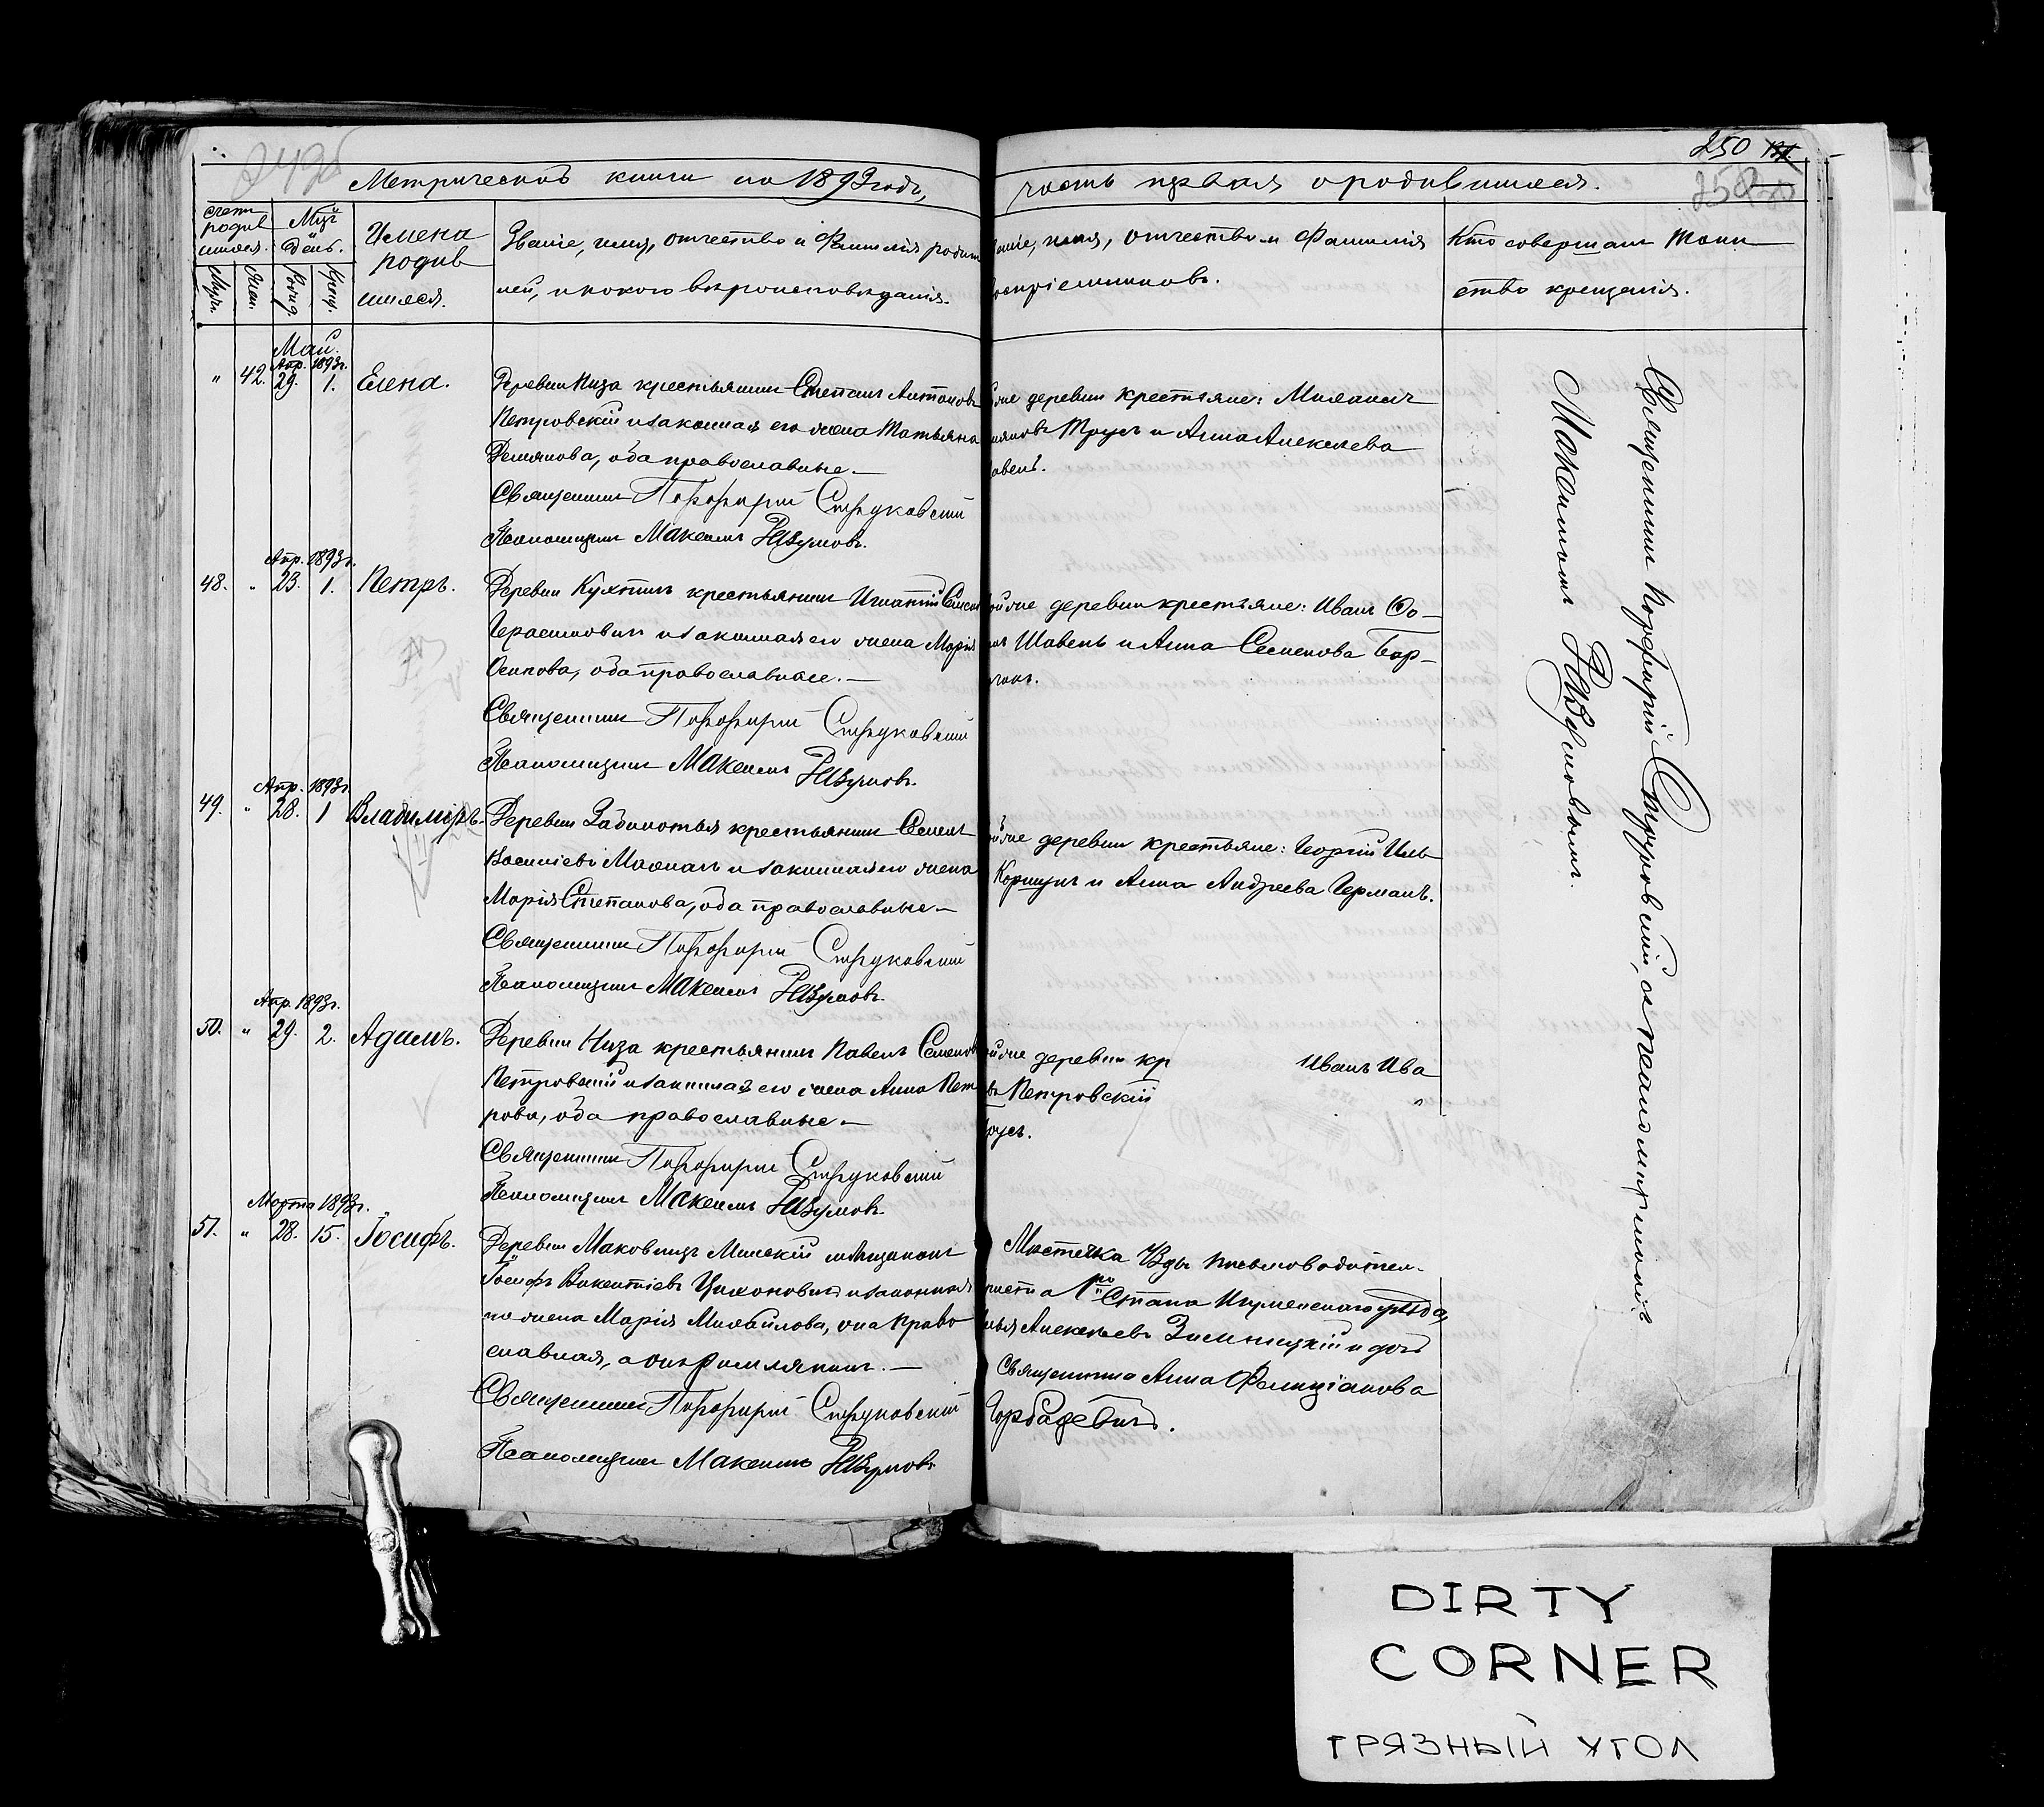 249об
250
258
Метрической книги на 1893 годъ,
часть первая о родившихся.
Счетъ родившихся.
Мѣц. и День.
Имена родившихся.
Званіе, имя, отчество и Фамилія родителей, и какого вѣроисповѣданія.
Званіе, имя, отчество и Фамилія воспріемниковъ.
Кто совершалъ Таинство крещенія.
Муж. Жен. Рожд. Крещ.
Май.
Апр. 1893г.
" 42. 29. 1. Елена.
Деревни Низа крестьянинъ Степанъ Антоновъ
Петровскій и законная его жена Татьяна
Демянова, оба православные.—
Священникъ Порфирій Струковскій
Псаломщикъ Максимъ Разумовъ.
той же деревни крестьяне:
Трусъ и Анна Алексѣева
Апр. 1893г.
48. " 23. 1. Петръ.
Деревни Кухтичъ крестьянинъ Игнатій Семеновъ
Герасимовичъ и законная его жена Марія
Осипова, оба православные.—
Священникъ Порфирій Струковскій
Псаломщикъ Максимъ Разумовъ.
той же деревни крестьяне: Иванъ Ѳо-
Шавель и Анна Семенова
Апр. 1893г.
49. " 28. 1 Владиміръ.
Деревни Заболотья крестьянинъ Семенъ
Васильевъ и законная его жена
Марія Степанова, оба православные.—
Священникъ Порфирій Струковскій
Псаломщикъ Максимъ Разумовъ.
той же деревни крестьяне: Георгій
Коршунъ и Анна Андреева Германъ.
Апр. 1893г.
50. " 29. 2. Адамъ.
Деревни Низа крестьянинъ Павелъ Семеновъ
Петровскій и законная его жена Анна Пет
рова, оба православные.—
Священникъ Порфирій Струковскій
Псаломщикъ Максимъ Разумовъ.
той же деревни кр Иванъ Ива
въ Петровскій "
русъ.
Марта 1893г.
51. " 28. 15. Іосифъ.
Деревни Маковищъ Минскій мѣщанинъ
Іосифъ Викентіевъ Цихоновичъ и законная
его жена Марія Михайлова, она право
славная, а онъ римлянинъ.—
Священникъ Порфирій Струковскій
Псаломщикъ Максимъ Разумовъ
Мѣстечка Узды письмоводитель
пристава 1го Стана Игуменскаго уѣзда,
Алексѣевъ Зисницкій и дочь
Священника Анна Фелиціанова
Горбацевичъ.
Священникъ Порфирій Струковскій, съ псаломщикомъ
Максимомъ Разумовымъ.
DIRTY
CORNER
ГРЯЗНЫЙ УГОЛ